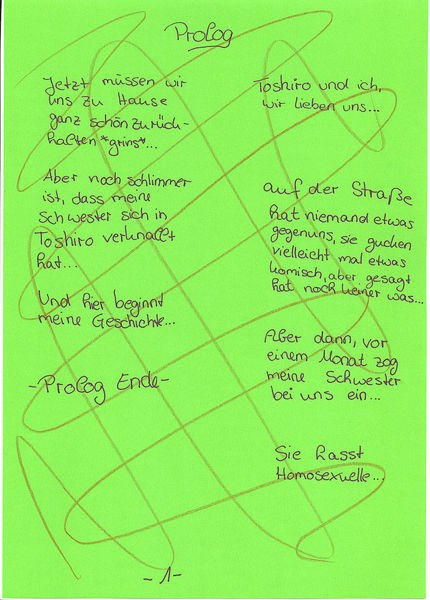 Prolog
Toshiro und ich,
wir lieben uns...
auf der Straße
hat niemand etwas
gegenuns, sie gucken
vielleicht mal etwas
komisch, aber gesagt
hat noch keiner was...
Aber dann, vor
einem Monat zog
meine Schwester
bei uns ein...
Sie hasst
Homosexuelle...
Jetzt müssen wir
uns zu Hause
ganz schön zurück-
halten *grins*...
Aber noch schlimmer
ist, dass meine
Schwester sich in
Toshiro verknallt
hat...
Und hier beginnt
meine Geschichte...
-Prolog Ende-
-1-